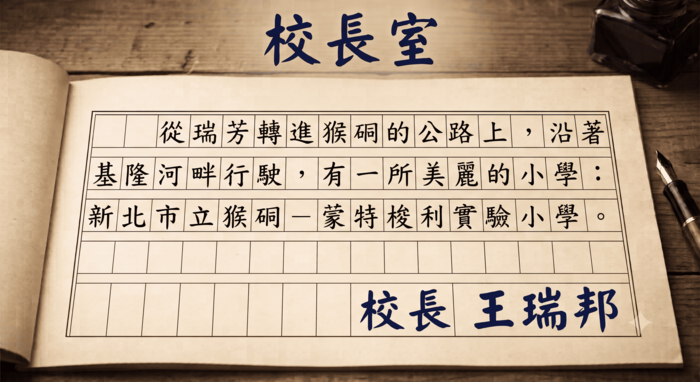 校長室
從瑞芳轉進猴硐的公路上，沿著
基隆河畔行駛，有一所美麗的小學：
新北市立猴硐－蒙特梭利實驗小學。
校長 王瑞邦